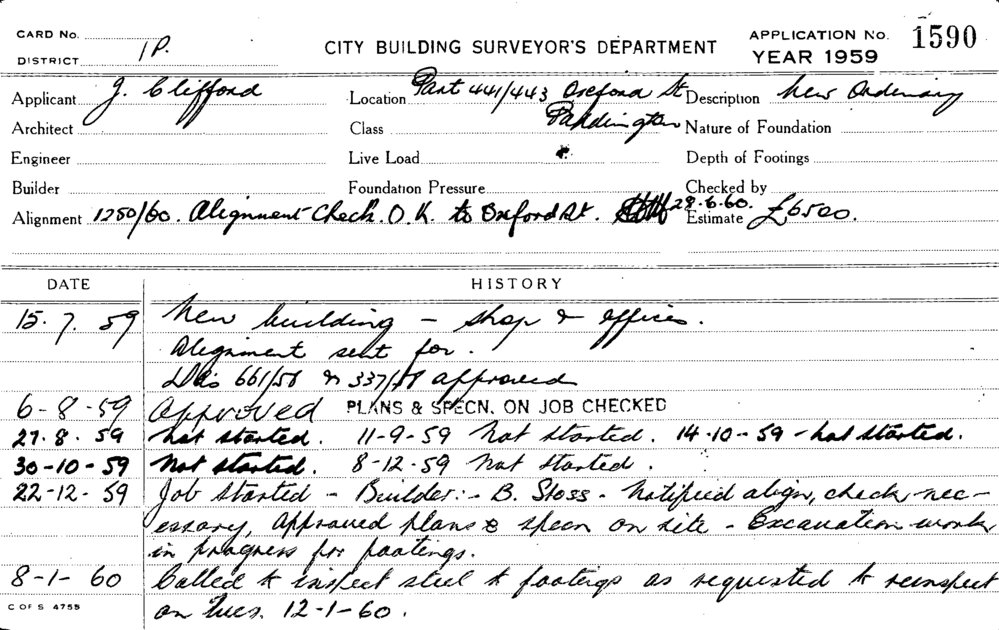 CARD No.
DISTRICT 1P.
CITY BUILDING SURVEYOR'S DEPARTMENT
APPLICATION No. 1590
YEAR 1959
Applicant J. Clifford Location Part 441/443 Oxford St Paddington Description New Ordinary
Architect Class Nature of Foundation
Engineer Live Load Depth of Footings
Builder Foundation Pressure Checked by
Alignment 1250/60. Alignment Check. O.K. to Oxford St. 28.6.60. Estimate £6500.
DATE HISTORY
15.7.59 New building - shop & offices.
Alignment sent for.
DA's 661/58 & 337/59 approved
6-8-59 Approved PLANS & SPECN. ON JOB CHECKED
27.8.59 Not started. 11-9-59 Not started. 14-10-59 - Not started.
30-10-59 Not started. 8-12-59 Not started.
22-12-59 Job started - Builder:- B. Stoss - Notified align, check nec-
essary, Approved plans & specn on site - Excavation work
in progress for footings.
8-1-60 Called to inspect steel to footings as requested to reinspect
C OF S 4755 on Tues. 12-1-60.